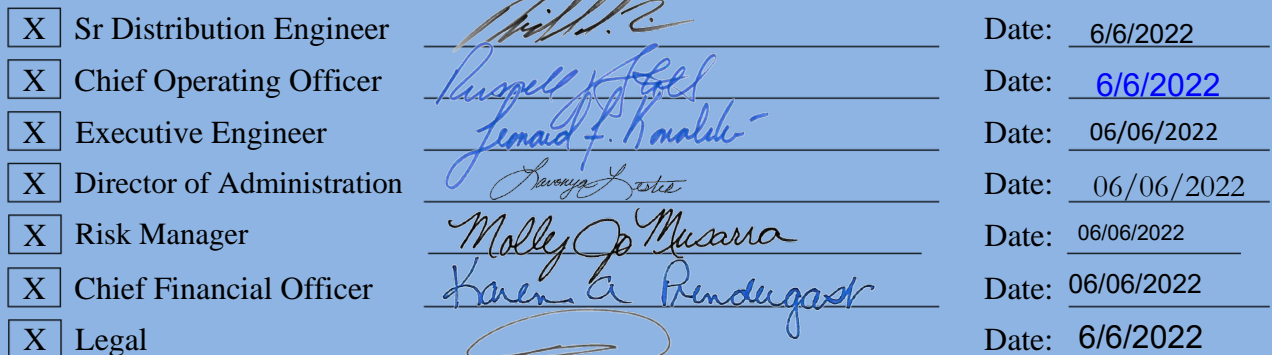 X Sr Distribution Engineer Date: 6/6/2022
X Chief Operating Officer Russell J Stoll Date: 6/6/2022
X Executive Engineer Leonard F. Date: 06/06/2022
X Director of Administration Date: 06/06/2022
X Risk Manager Molly Jo Musarra Date: 06/06/2022
X Chief Financial Officer Karen A Prendergast Date: 06/06/2022
X Legal Date: 6/6/2022